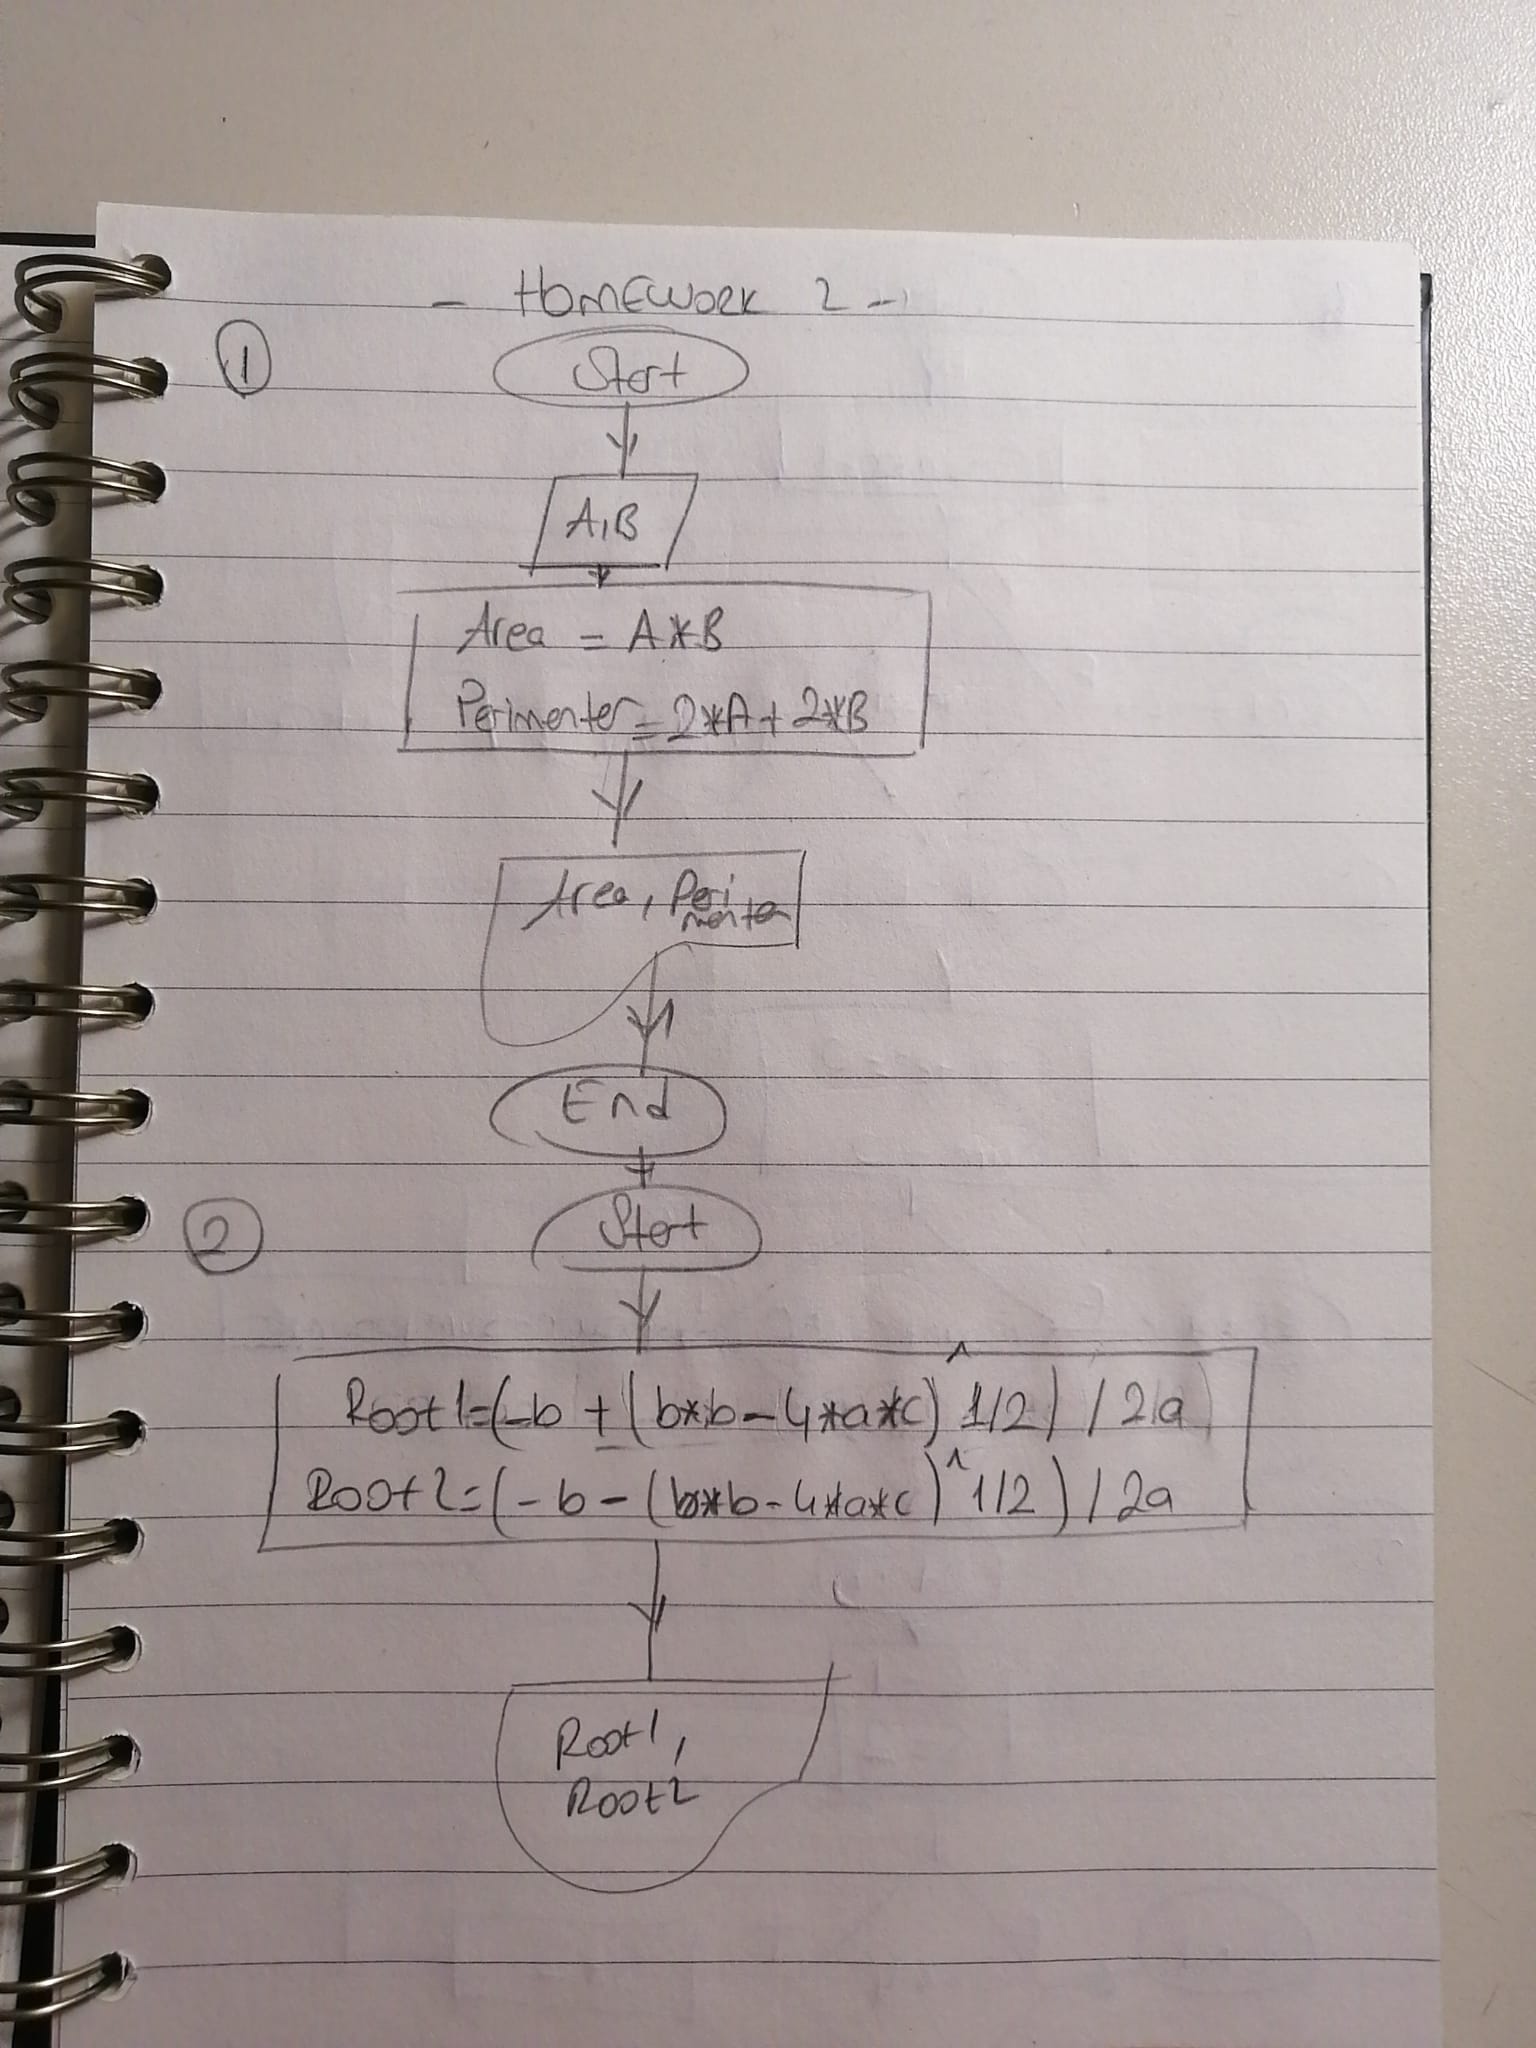 - HOMEWORK 2 -
1
Start
A,B
Area = A*B
Perimenter = 2*A + 2*B
Area, Peri
menter
End
2
Start
Root1=(-b + (b*b-4*a*c)^1/2) / 2a
Root2=(-b - (b*b-4*a*c)^1/2) / 2a
Root1,
Root2